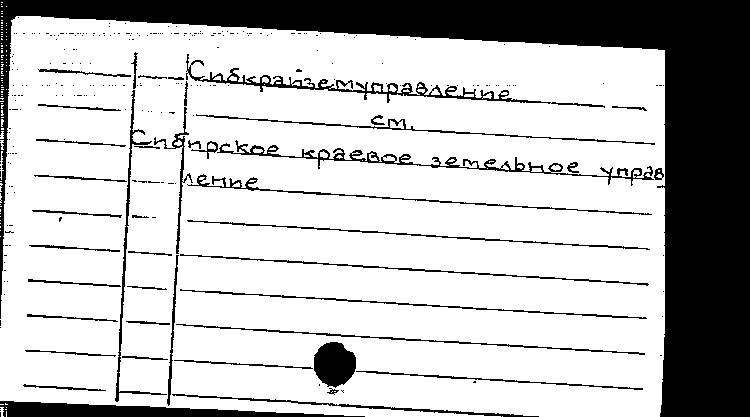 Сибкрайземуправление
см.
Сибирское краевое земельное управ
ление